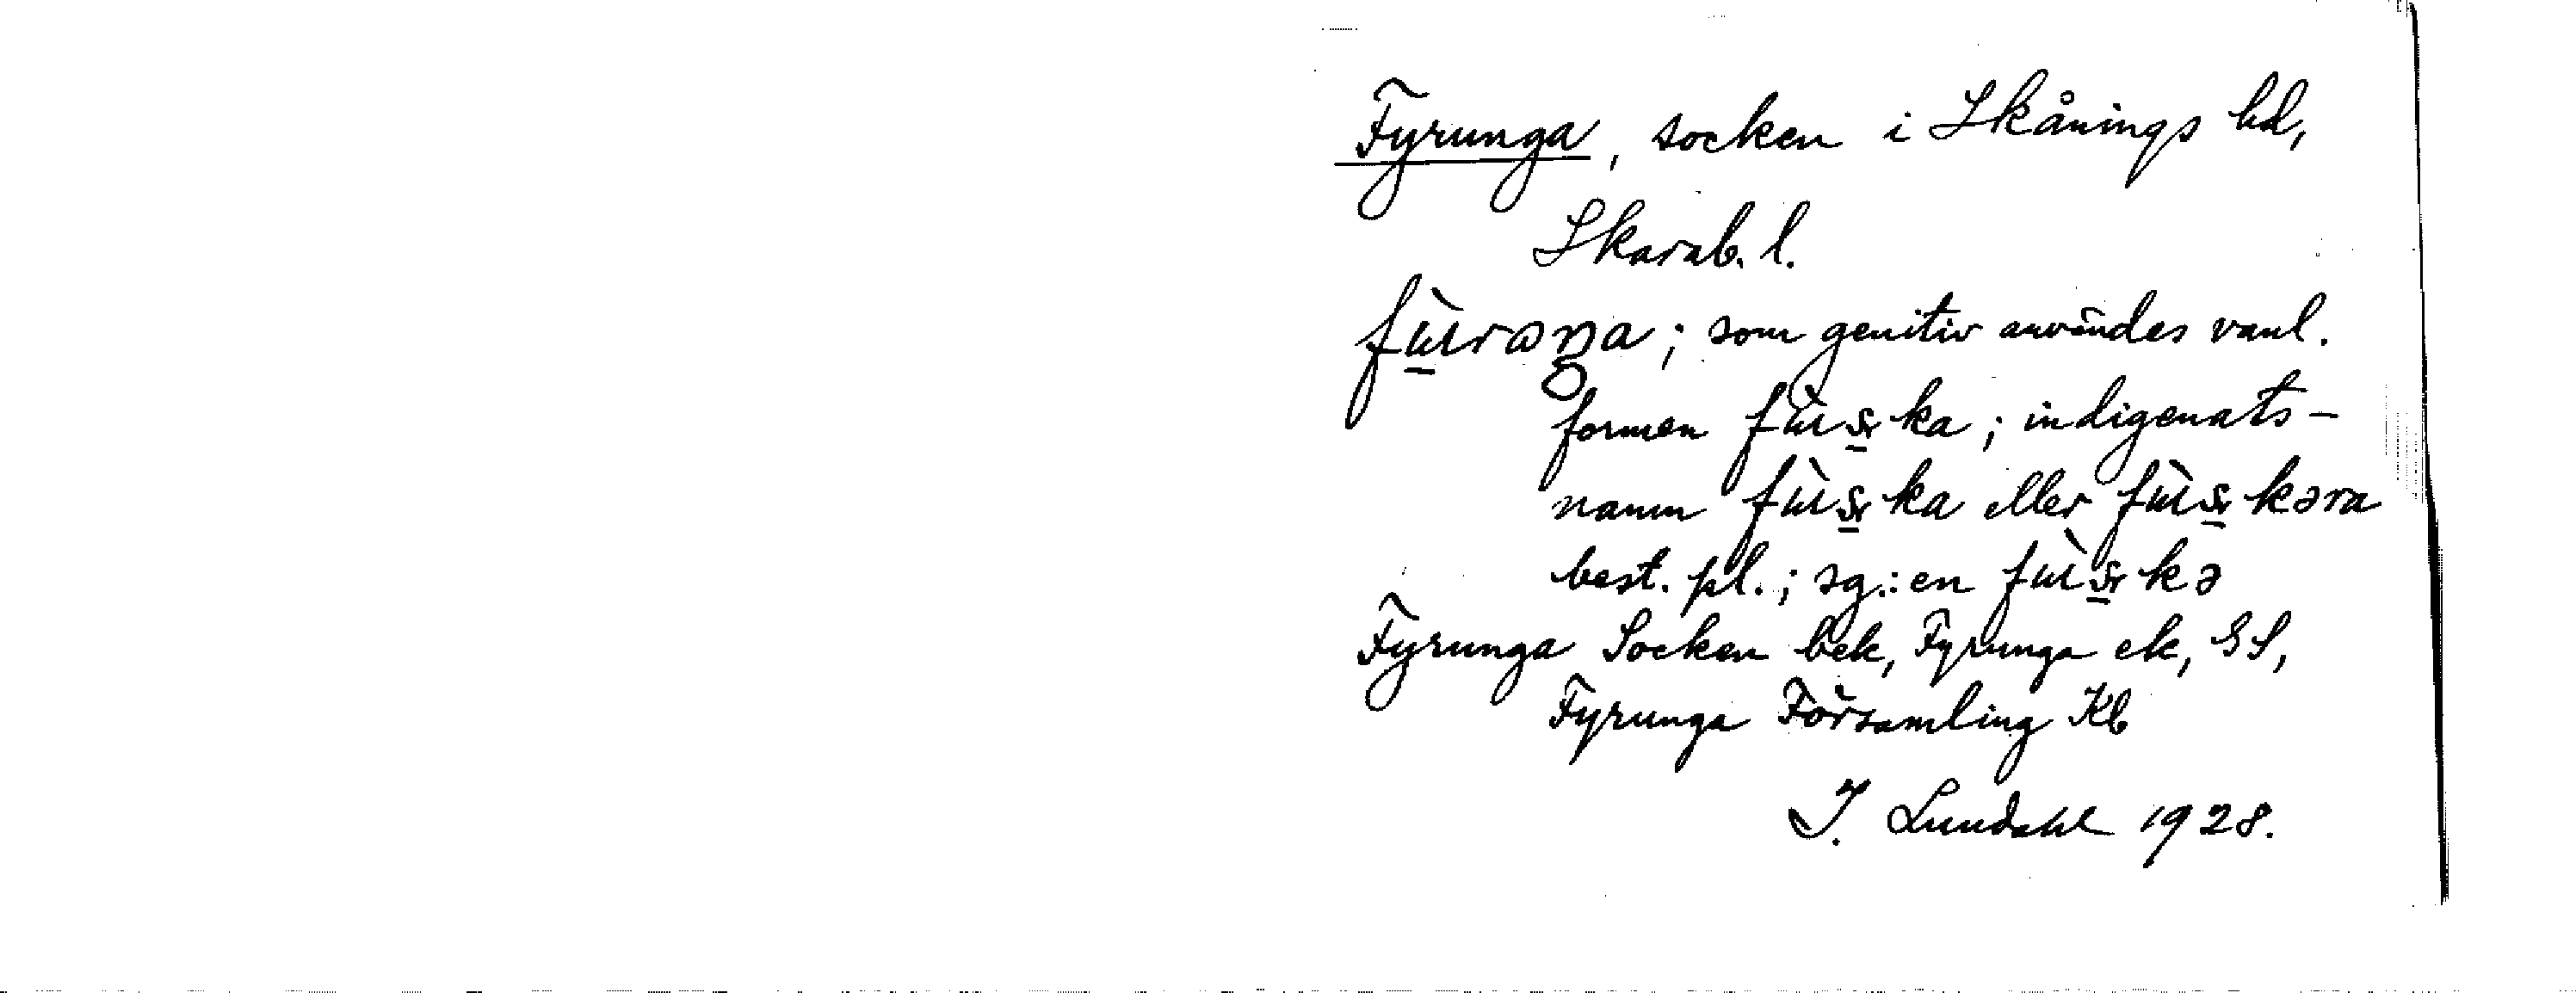 Fyrunga, socken i Skånings hd,
Skarab. l.
fùrɷŋa; som genitiv användes vanl.
formen fùʂka; indigenats-
namn fùʂka eller fùʂkəra
best. pl.; sg.: en fùʂkə
Fyrunga Socken bek, Fyrunga ek, GS,
Fyrunga Församling Kb
I. Lundahl 1928.